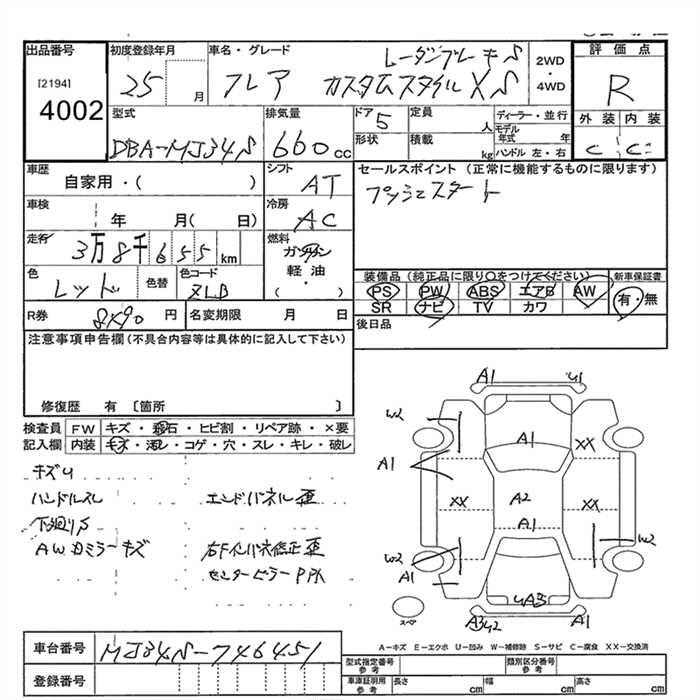 出品番号
[2194]
4002
初度登録年月
25 月
車名・グレード
レーダーブレーキS
フレア カスタムスタイル XS
2WD
・
4WD
評価点
R
外装 内装
C C
型式
DBA-MJ34S
排気量
660cc
ドア 5
形状
定員 人
積載 kg
ディーラー・並行
モデル年式 年
ハンドル 左・右
車歴
自家用・( )
シフト
AT
車検
年 月( 日)
冷房
AC
走行
3万8千655km
燃料
ガソリン
軽油・
( )
色
レッド
色替
色コード
ZLB
R券
8490円
名変期限 月 日
セールスポイント(正常に機能するものに限ります)
プッシュスタート
装備品(純正品に限り○をつけてください)
新車保証書
PS PW ABS エアB AW
SR ナビ TV カワ
有・無
後日品
注意事項申告欄(不具合内容等は具体的に記入して下さい)
修復歴 有〔箇所 〕
検査員 FW キズ・飛石・ヒビ割・リペア跡・×要
記入欄 内装 キズ・汚レ・コゲ・穴・スレ・キレ・破レ
キズU
ハンドルスレ
エンドパネル歪
下廻りS
AWカミラーキズ
右Fインパネ修正歪
センターピラーPRK
A1 U1
W2
A1
A1
XX
XX
A2
XX
A1
W2
W2
A1
UA3
A3U2
A1
スペア
A-キズ E-エクボ U-凹み W-補修跡 S-サビ C-腐食 XX-交換済
車台番号
MJ34S-746451
登録番号
型式指定番号
参考
類別区分番号
参考
車庫証明用
参考
長さ cm 幅 cm 高さ cm